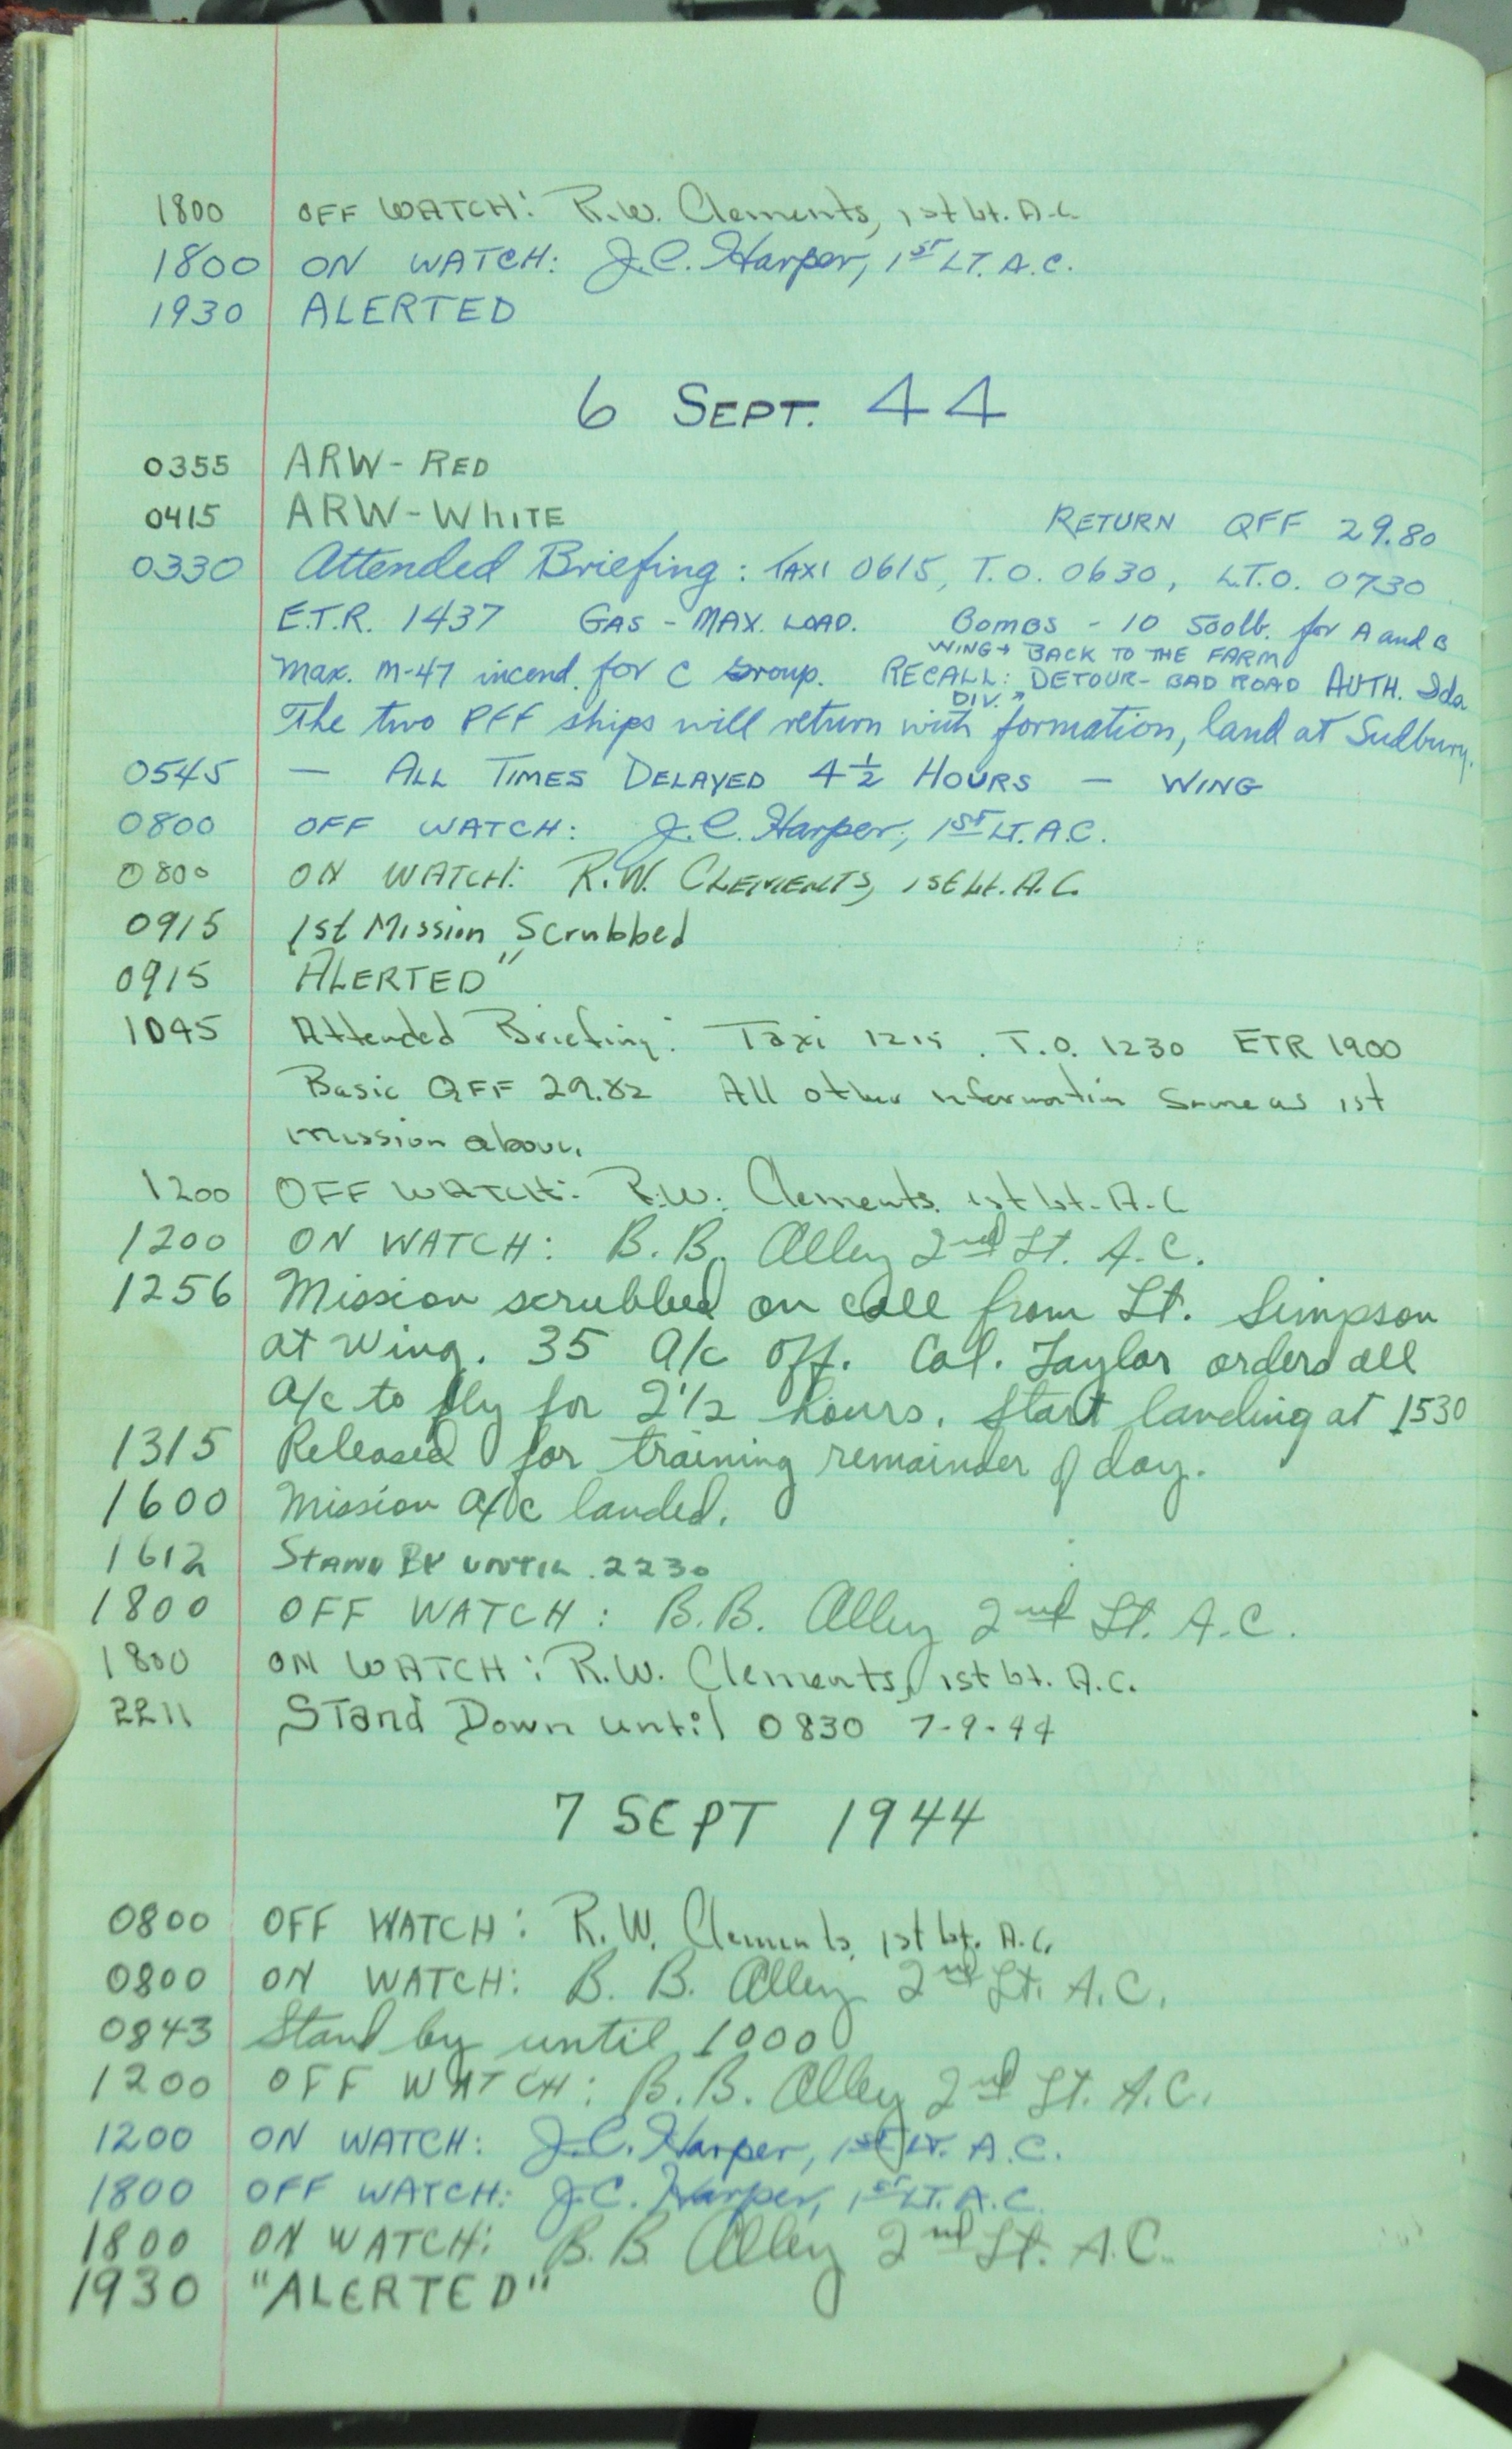 1800 OFF WATCH: R.W. Clements, 1st Lt. A.C.
1800 ON WATCH: J.C. Harper, 1ST LT. A.C.
1930 ALERTED
6 SEPT. 44
0355 ARW - RED
0415 ARW - WHITE
RETURN QFF 29.80
0330 Attended Briefing: TAXI 0615, T.O. 0630, L.T.O. 0730
E.T.R. 1437 GAS - MAX. LOAD. BOMBS - 10 500lb. for A and B
WING → BACK TO THE FARM
Max. M-47 incend. for C Group. RECALL: DETOUR - BAD ROAD AUTH. Ida
DIV. →
The two PFF ships will return with formation, land at Sudbury.
0545 — ALL TIMES DELAYED 4 1/2 HOURS — WING
0800 OFF WATCH: J.C. Harper, 1ST LT. A.C.
0800 ON WATCH: R.W. CLEMENTS, 1st Lt. A.C.
0915 1st Mission Scrubbed
0915 ALERTED"
1045 Attended Briefing: Taxi 1215. T.O. 1230 ETR 1900
Basic QFF 29.82 All other information same as 1st
mission above.
1200 OFF WATCH: R.W. Clements 1st Lt. A.C
1200 ON WATCH: B.B. Alley 2nd Lt. A.C.
1256 Mission scrubbed on call from Lt. Simpson
at Wing. 35 a/c off. Col. Taylor orders all
a/c to fly for 2 1/2 hours. Start landing at 1530
1315 Released for training remainder of day.
1600 Mission a/c landed.
1612 STAND BY UNTIL 2230
1800 OFF WATCH: B.B. Alley 2nd Lt. A.C.
1800 ON WATCH: R.W. Clements, 1st Lt. A.C.
2211 Stand Down until 0830 7-9-44
7 SEPT 1944
0800 OFF WATCH: R.W. Clements, 1st Lt. A.C.
0800 ON WATCH: B.B. Alley 2nd Lt. A.C.
0843 Stand by until 1000
1200 OFF WATCH: B.B. Alley 2nd Lt. A.C.
1200 ON WATCH: J.C. Harper, 1ST LT. A.C.
1800 OFF WATCH: J.C. Harper, 1ST LT. A.C.
1800 ON WATCH: B.B. Alley 2nd Lt. A.C.
1930 "ALERTED"